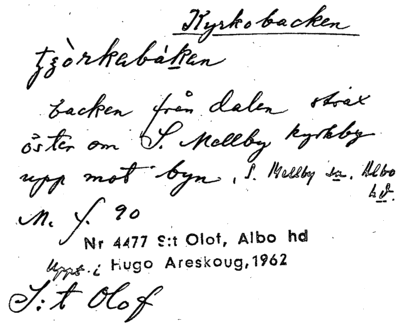 Kyrkobacken
tzòrkabákan
backen från dalen strax
öster om S. Mellby kyrkby
upp mot byn, S. Mellby sn, Albo
hd.
M. f. 90
Nr 4477 S:t Olof, Albo hd
Uppt. i Hugo Areskoug, 1962
S:t Olof